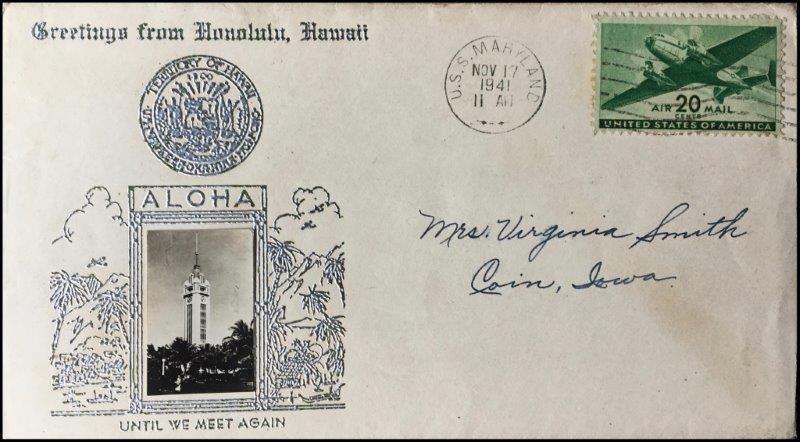 Greetings from Honolulu, Hawaii
TERRITORY OF HAWAII
1900
ALOHA
UNTIL WE MEET AGAIN
U.S.S. MARYLAND
NOV 17
1941
11 AM
AIR 20 MAIL
CENTS
UNITED STATES OF AMERICA
Mrs. Virginia Smith
Coin, Iowa